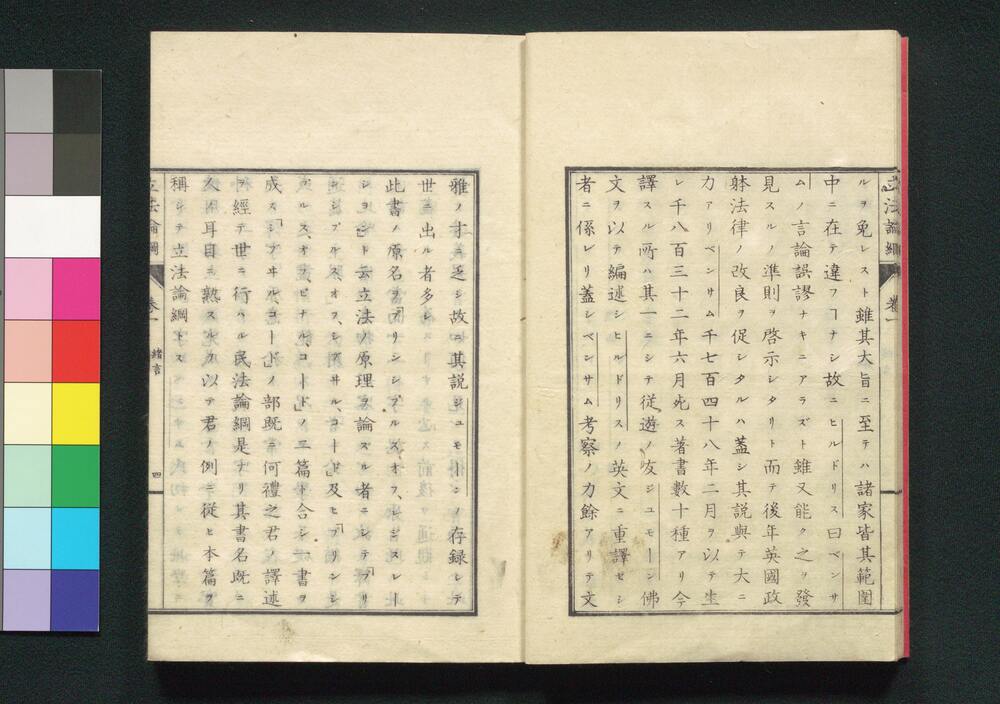 立法論綱　卷一
ルヲ免レスト雖其大旨ニ至テハ諸家皆其範圍
中ニ在テ違フヿナシ故ニヒルドリス曰ベンサ
ムノ言論誤謬ナキニアラズト雖又能ク之ヲ發
見スルノ準則ヲ啓示シタリト而テ後年英國政
躰法律ノ改良ヲ促シタルハ蓋シ其説與テ大ニ
力アリベンサム千七百四十八年二月ヲ以テ生
レ千八百三十二年六月死ス著書數十種アリ今
譯スル所ハ其一ニシテ從遊ノ友ジユモーン佛
文ヲ以テ編述シヒルドリスノ英文ニ重譯セシ
者ニ係レリ蓋シベンサム考察ノ力餘アリテ文
雅ノ才ニ乏シ故ニ其説ジユモーンノ存録シテ
世ニ出ル者多シ
此書ノ原名ヲ「プリンシプルスオフ、レジスレー
シヨン」ト云立法ノ原理ヲ論ズル者ニシテ「プリ
ンシプルスオフ、シヴヰル、コード」及ヒ「プリンシ
プルス、オフ、ピナルコード」ノ二篇ト合シ一書ヲ
成ス「シヴヰルコード」ノ部既ニ何禮之君ノ譯述
ヲ經テ世ニ行ハル民法論綱是ナリ其書名既ニ
人ノ耳目ニ熟スルカ以テ君ノ例ニ從ヒ本篇ヲ
稱シテ立法論綱トス
立法論綱　卷一　緒言　四